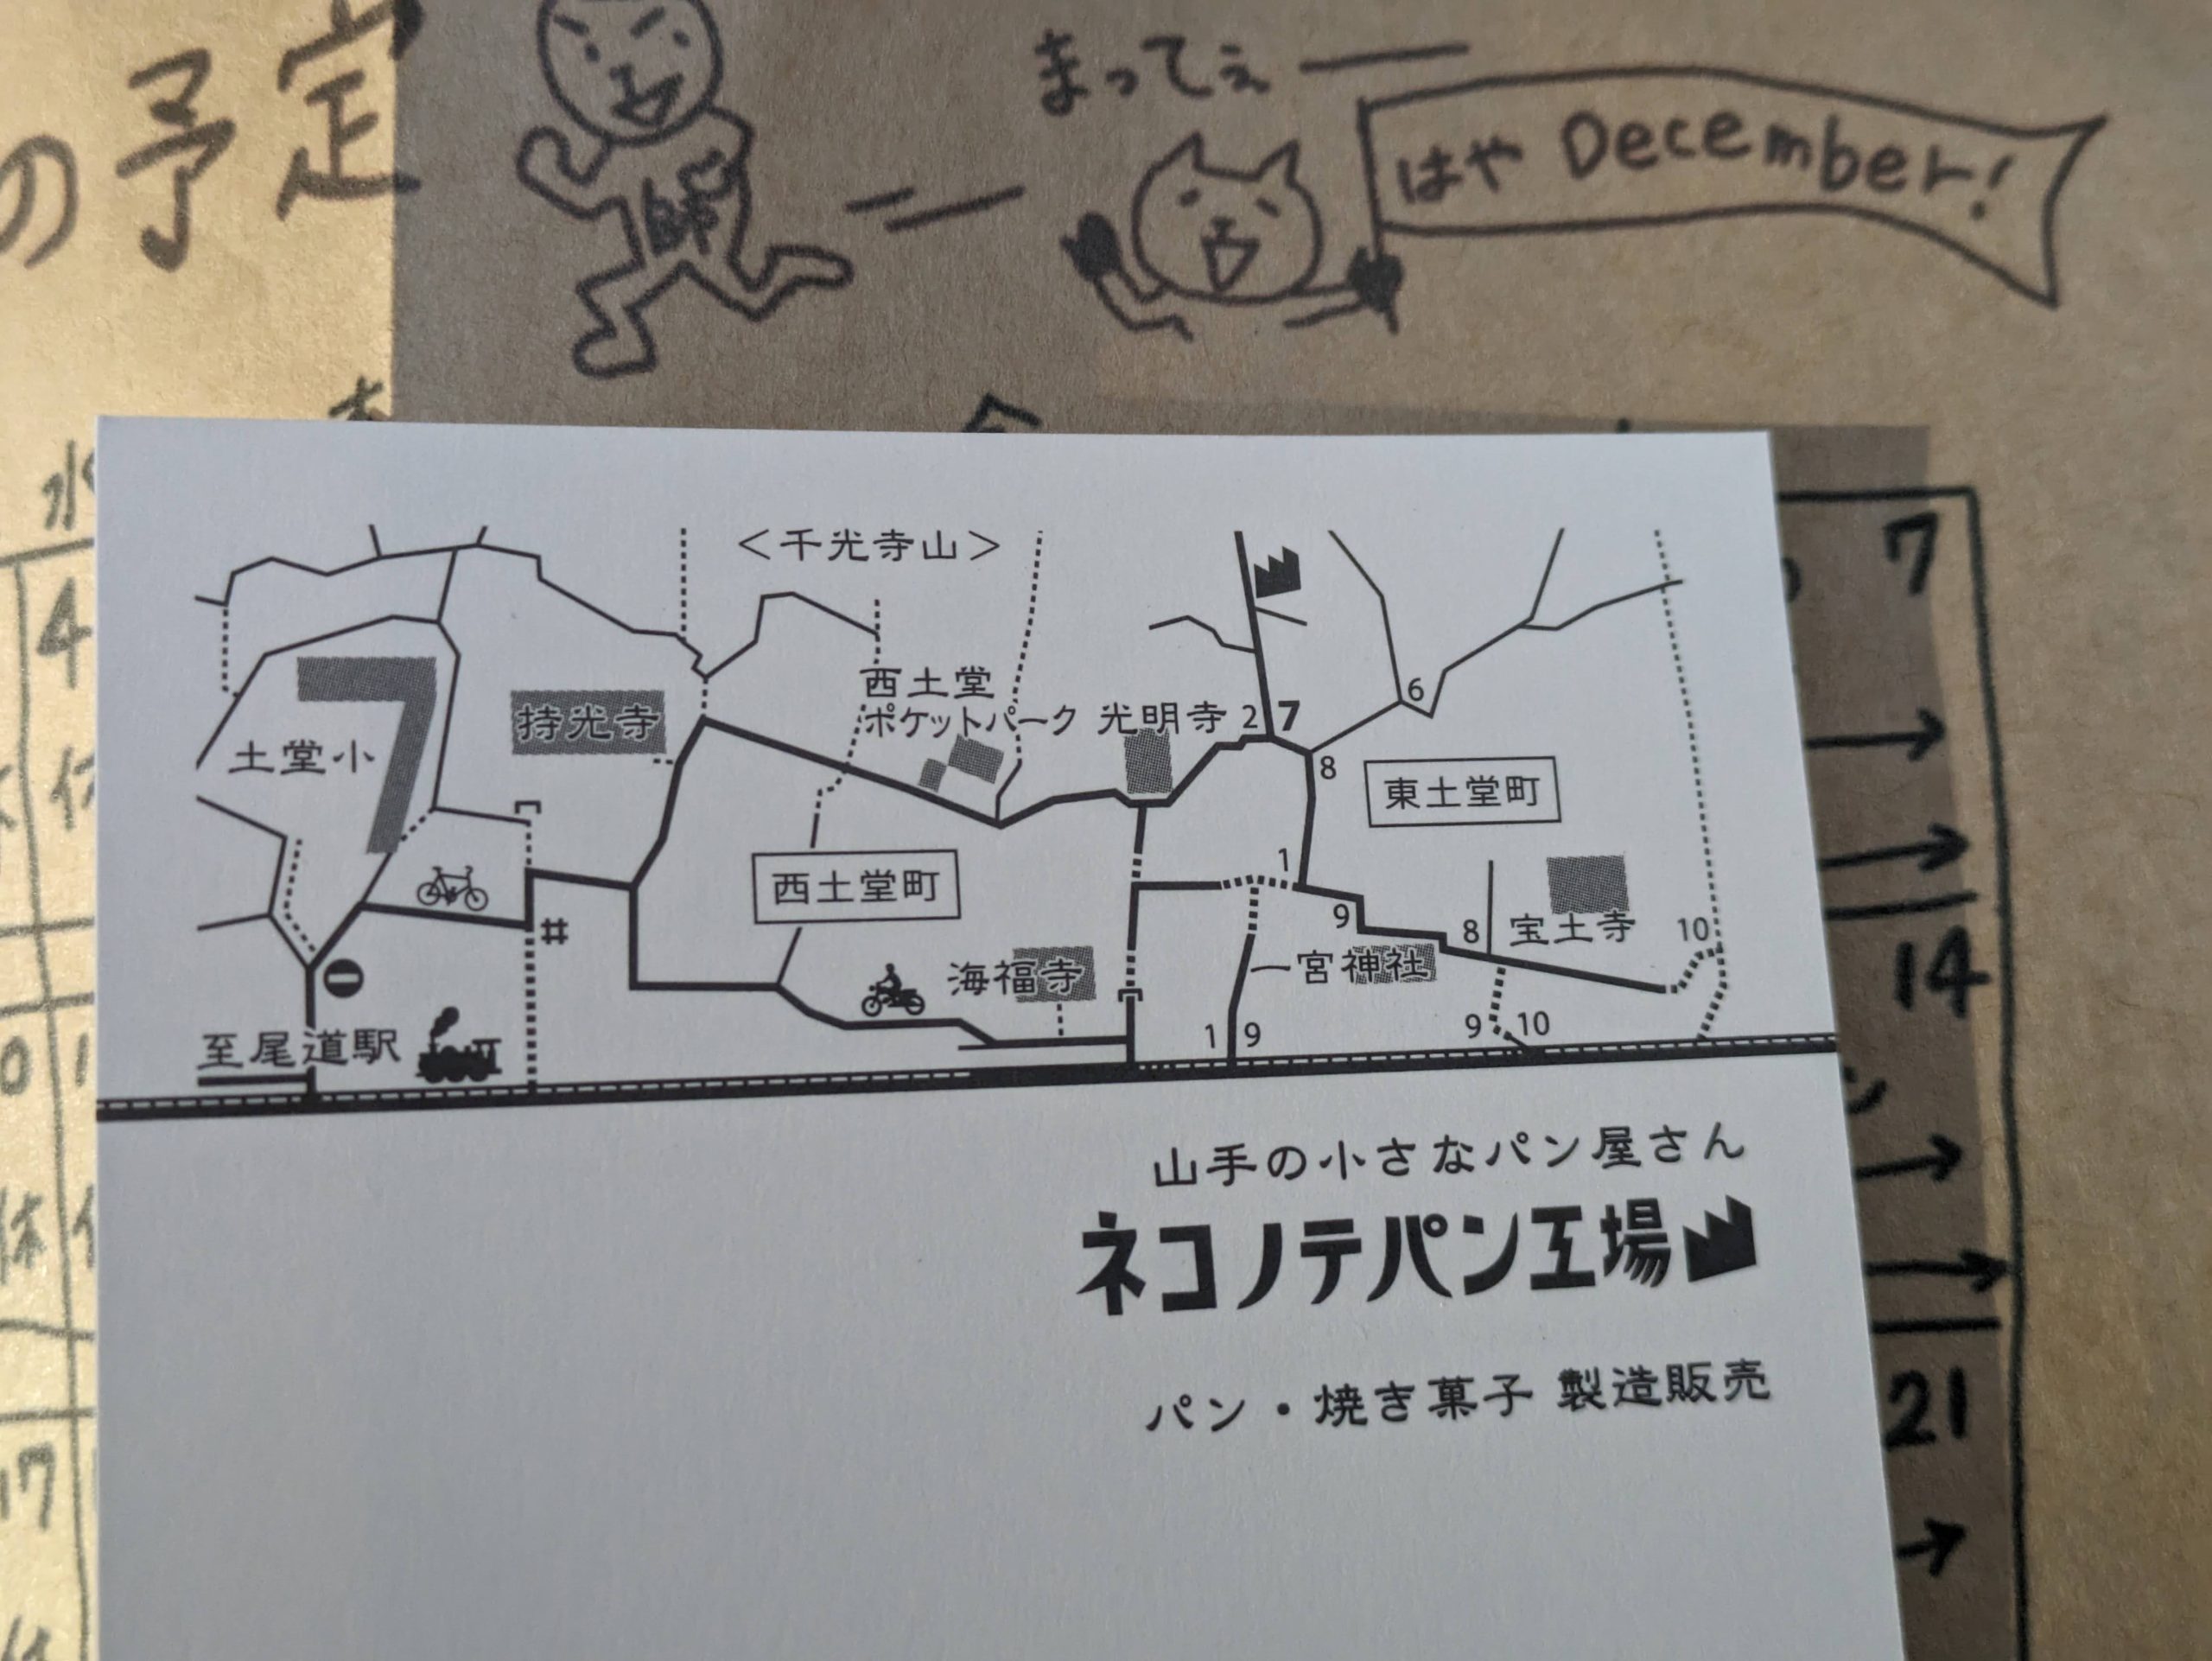 の予定
まってぇ
はや December!
師
水
7
4
14
21
17
＜千光寺山＞
西土堂
ポケットパーク
光明寺
2
7
6
8
持光寺
土堂小
東土堂町
西土堂町
1
9
8
宝土寺
10
海福寺
一宮神社
1
9
9
10
至尾道駅
山手の小さなパン屋さん
ネコノテパン工場
パン・焼き菓子 製造販売